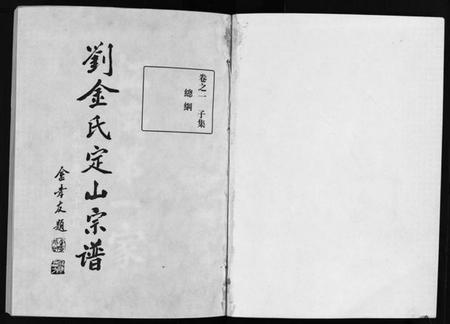 卷之一 子集
總綱
劉金氏定山宗谱
金孝友題